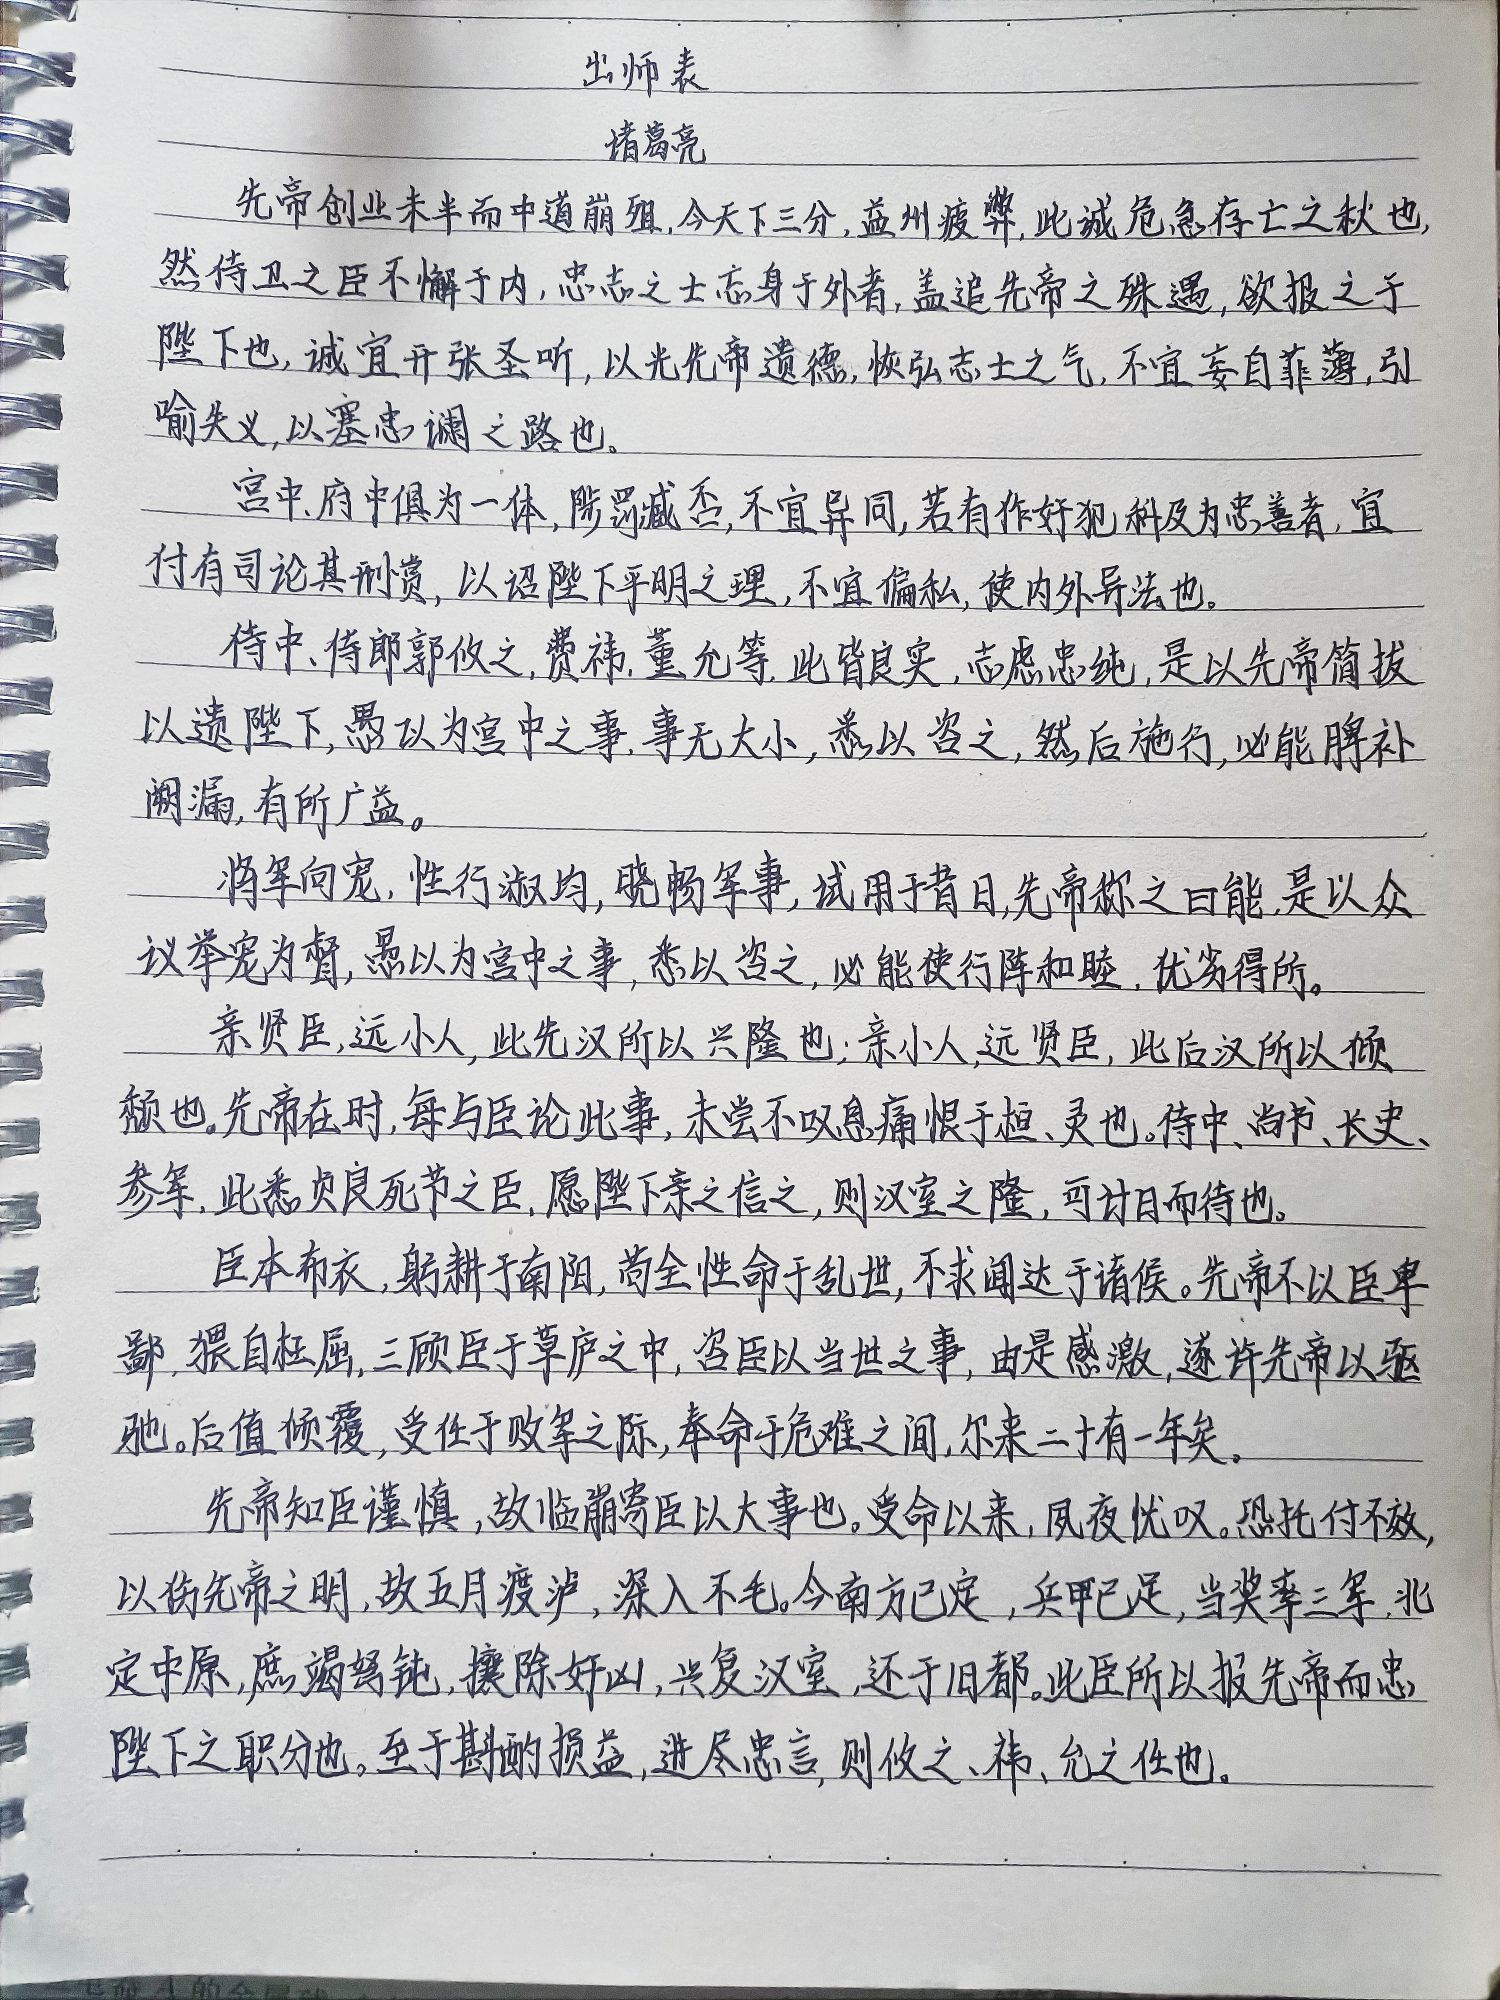 出师表
诸葛亮
先帝创业未半而中道崩殂,今天下三分,益州疲弊,此诚危急存亡之秋也,
然侍卫之臣不懈于内,忠志之士忘身于外者,盖追先帝之殊遇,欲报之于
陛下也,诚宜开张圣听,以光先帝遗德,恢弘志士之气,不宜妄自菲薄,引
喻失义,以塞忠谏之路也。
宫中、府中俱为一体,陟罚臧否,不宜异同,若有作奸犯科及为忠善者,宜
付有司论其刑赏,以诏陛下平明之理,不宜偏私,使内外异法也。
侍中、侍郎郭攸之,费祎,董允等,此皆良实,志虑忠纯,是以先帝简拔
以遗陛下,愚以为宫中之事,事无大小,悉以咨之,然后施行,必能脾补
阙漏,有所广益。
将军向宠,性行淑均,晓畅军事,试用于昔日,先帝称之曰能,是以众
议举宠为督,愚以为宫中之事,悉以咨之,必能使行阵和睦,优劣得所。
亲贤臣,远小人,此先汉所以兴隆也;亲小人,远贤臣,此后汉所以倾
颓也。先帝在时,每与臣论此事,未尝不叹息痛恨于桓、灵也。侍中、尚书、长史、
参军,此悉贞良死节之臣,愿陛下亲之信之,则汉室之隆,可计日而待也。
臣本布衣,躬耕于南阳,苟全性命于乱世,不求闻达于诸侯。先帝不以臣卑
鄙,猥自枉屈,三顾臣于草庐之中,咨臣以当世之事,由是感激,遂许先帝以驱
驰。后值倾覆,受任于败军之际,奉命于危难之间,尔来二十有一年矣。
先帝知臣谨慎,故临崩寄臣以大事也。受命以来,夙夜忧叹。恐托付不效,
以伤先帝之明,故五月渡泸,深入不毛。今南方已定,兵甲已足,当奖率三军,北
定中原,庶竭驽钝,攘除奸凶,兴复汉室,还于旧都。此臣所以报先帝而忠
陛下之职分也。至于斟酌损益,进尽忠言,则攸之、祎、允之任也。